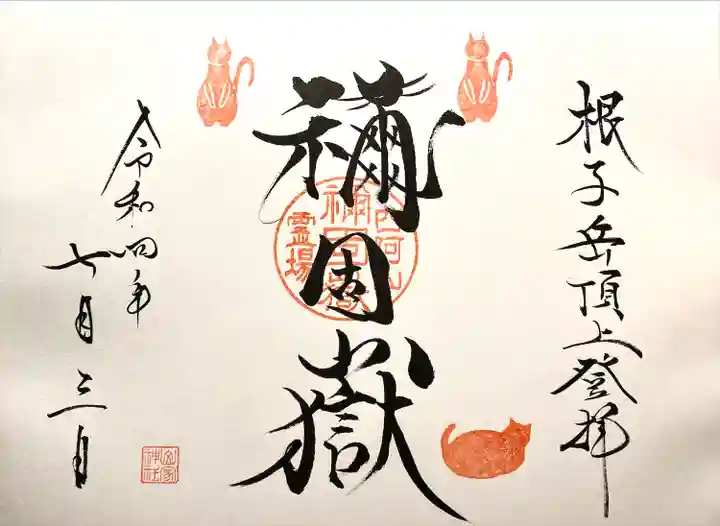 根子岳頂上登拝
禰固嶽
四阿山
禰固嶽
霊場
令和四年
七月三日
山家
神社